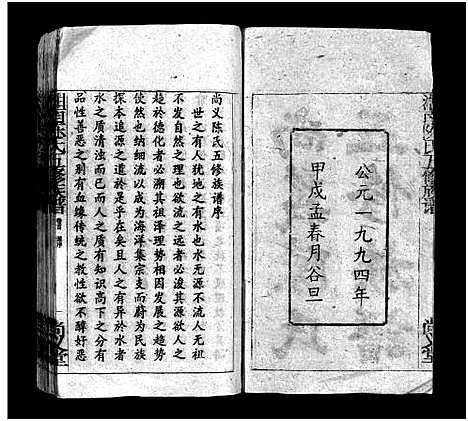 公元一九九四年
甲戌孟春月谷旦
尚义堂
尚义陈氏五修族谱序
世之有人犹地之有水也水无源不流人无祖
不发自然之理也欲流之远者必浚其源欲人之
趋於德化者必溯其祖泽理势相因发展之趋势
使然也纳细流以成为海洋集宗支而蔚为民族
探本追源之道於是乎在矣且人之有异於水者
水之质清浊而已而人则有知识高下之分有
品性善恶之别有血缘传统之教性欲不醇好恶